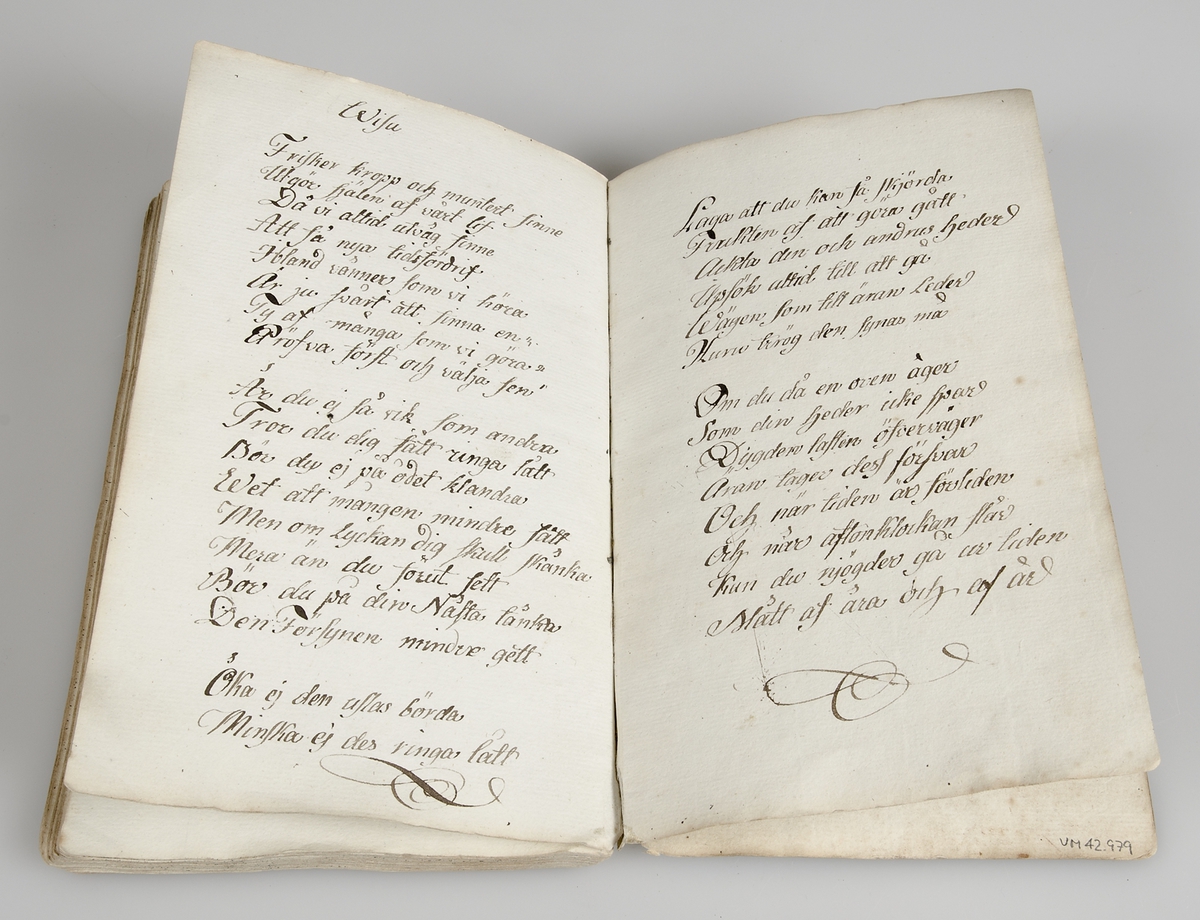 Wisa
Frisker kropp och muntert sinne
Utgör själen af vårt lif
Då vi altid utväg finne
Att få nya tidsfördrif
Ibland vänner som vi höra
Är ju svårt att finna en
Ty af många som vi göra
Pröfva först och välja sen
Är du ej så rik som andra
Tror du dig fått ringa lått
Bör du ej på ödet klandra
Wet att mången mindre fått
Men om lyckan dig skull skänka
Mera än du förut sett
Bör du på din Nästa tänka
Den Försynen mindre gett
Öka ej den uslas börda
Minska ej des ringa lått
Laga att du kan få skjörda
Frukten af att göra gått
Ackta din och andras heder
Upsök altid till att gå
Wägen som till äran leder
Huru krög den synas må
Om du då en oven äger
Som din heder icke spar
Dygden lasten öfverväger
Äran tager dess försvar
Och när tiden är förliden
Och när aftonklockan slår
Kan du njögder gå ur tiden
Mått af ära och af år
VM 42.979